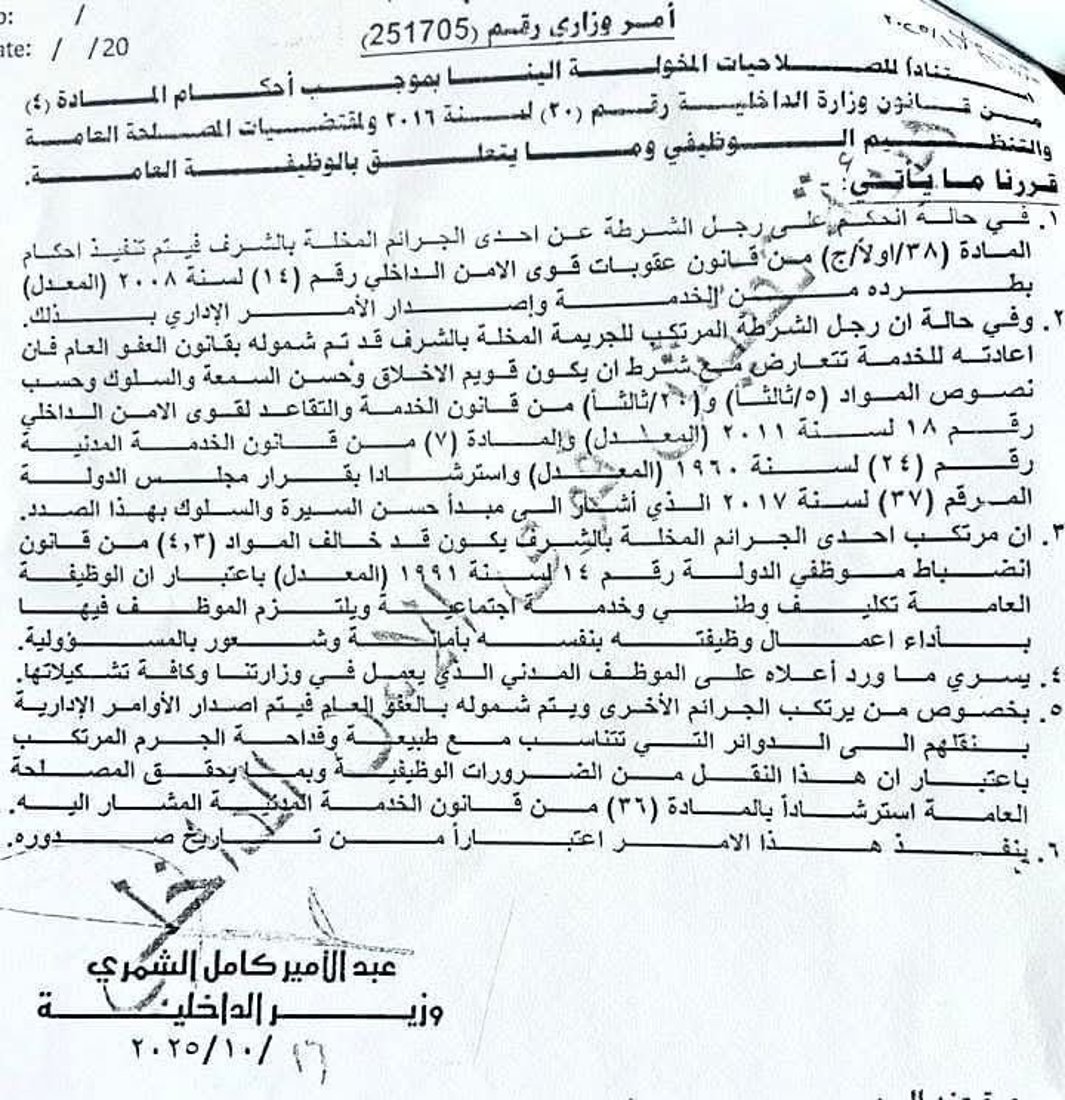 o: /
ate: / /20
أمر وزاري رقم (251705)
ـتناداً للصلاحيات المخولة الينا بموجب أحكام المادة (٤)
من قانون وزارة الداخلية رقم (٢٠) لسنة ٢٠١٦ ولمقتضيات المصلحة العامة
والتنظيم الوظيفي وما يتعلق بالوظيفة العامة.
قررنا ما يأتي: -
١. في حالة الحكم على رجل الشرطة عن احدى الجرائم المخلة بالشرف فيتم تنفيذ احكام
المادة (٣٨/اولاً/ج) من قانون عقوبات قوى الامن الداخلي رقم (١٤) لسنة ٢٠٠٨ (المعدل)
بطرده من الخدمة وإصدار الأمر الإداري بذلك.
٢. وفي حالة ان رجل الشرطة المرتكب للجريمة المخلة بالشرف قد تم شموله بقانون العفو العام فان
اعادته للخدمة تتعارض مع شرط ان يكون قويم الاخلاق وحسن السمعة والسلوك وحسب
نصوص المواد (٥/ثالثاً) و(٢٠/ثالثاً) من قانون الخدمة والتقاعد لقوى الامن الداخلي
رقم ١٨ لسنة ٢٠١١ (المعدل) والمادة (٧) من قانون الخدمة المدنية
رقم (٢٤) لسنة ١٩٦٠ (المعدل) واسترشادا بقرار مجلس الدولة
المرقم (٣٧) لسنة ٢٠١٧ الذي أشار الى مبدأ حسن السيرة والسلوك بهذا الصدد.
٣. ان مرتكب احدى الجرائم المخلة بالشرف يكون قد خالف المواد (٤,٣) من قانون
انضباط موظفي الدولة رقم ١٤ لسنة ١٩٩١ (المعدل) باعتبار ان الوظيفة
العامة تكليف وطني وخدمة اجتماعية ويلتزم الموظف فيها
بأداء اعمال وظيفته بنفسه بأمانة وشعور بالمسؤولية.
٤. يسري ما ورد أعلاه على الموظف المدني الذي يعمل في وزارتنا وكافة تشكيلاتها.
٥. بخصوص من يرتكب الجرائم الأخرى ويتم شموله بالعفو العام فيتم اصدار الأوامر الإدارية
بنقلهم الى الدوائر التي تتناسب مع طبيعة وفداحة الجرم المرتكب
باعتبار ان هذا النقل من الضرورات الوظيفية وبما يحقق المصلحة
العامة استرشاداً بالمادة (٣٦) من قانون الخدمة المدنية المشار اليه.
٦. ينفذ هذا الامر اعتباراً من تاريخ صدوره.
عبد الأمير كامل الشمري
وزير الداخلية
٢٠٢٥/١٠/١٦